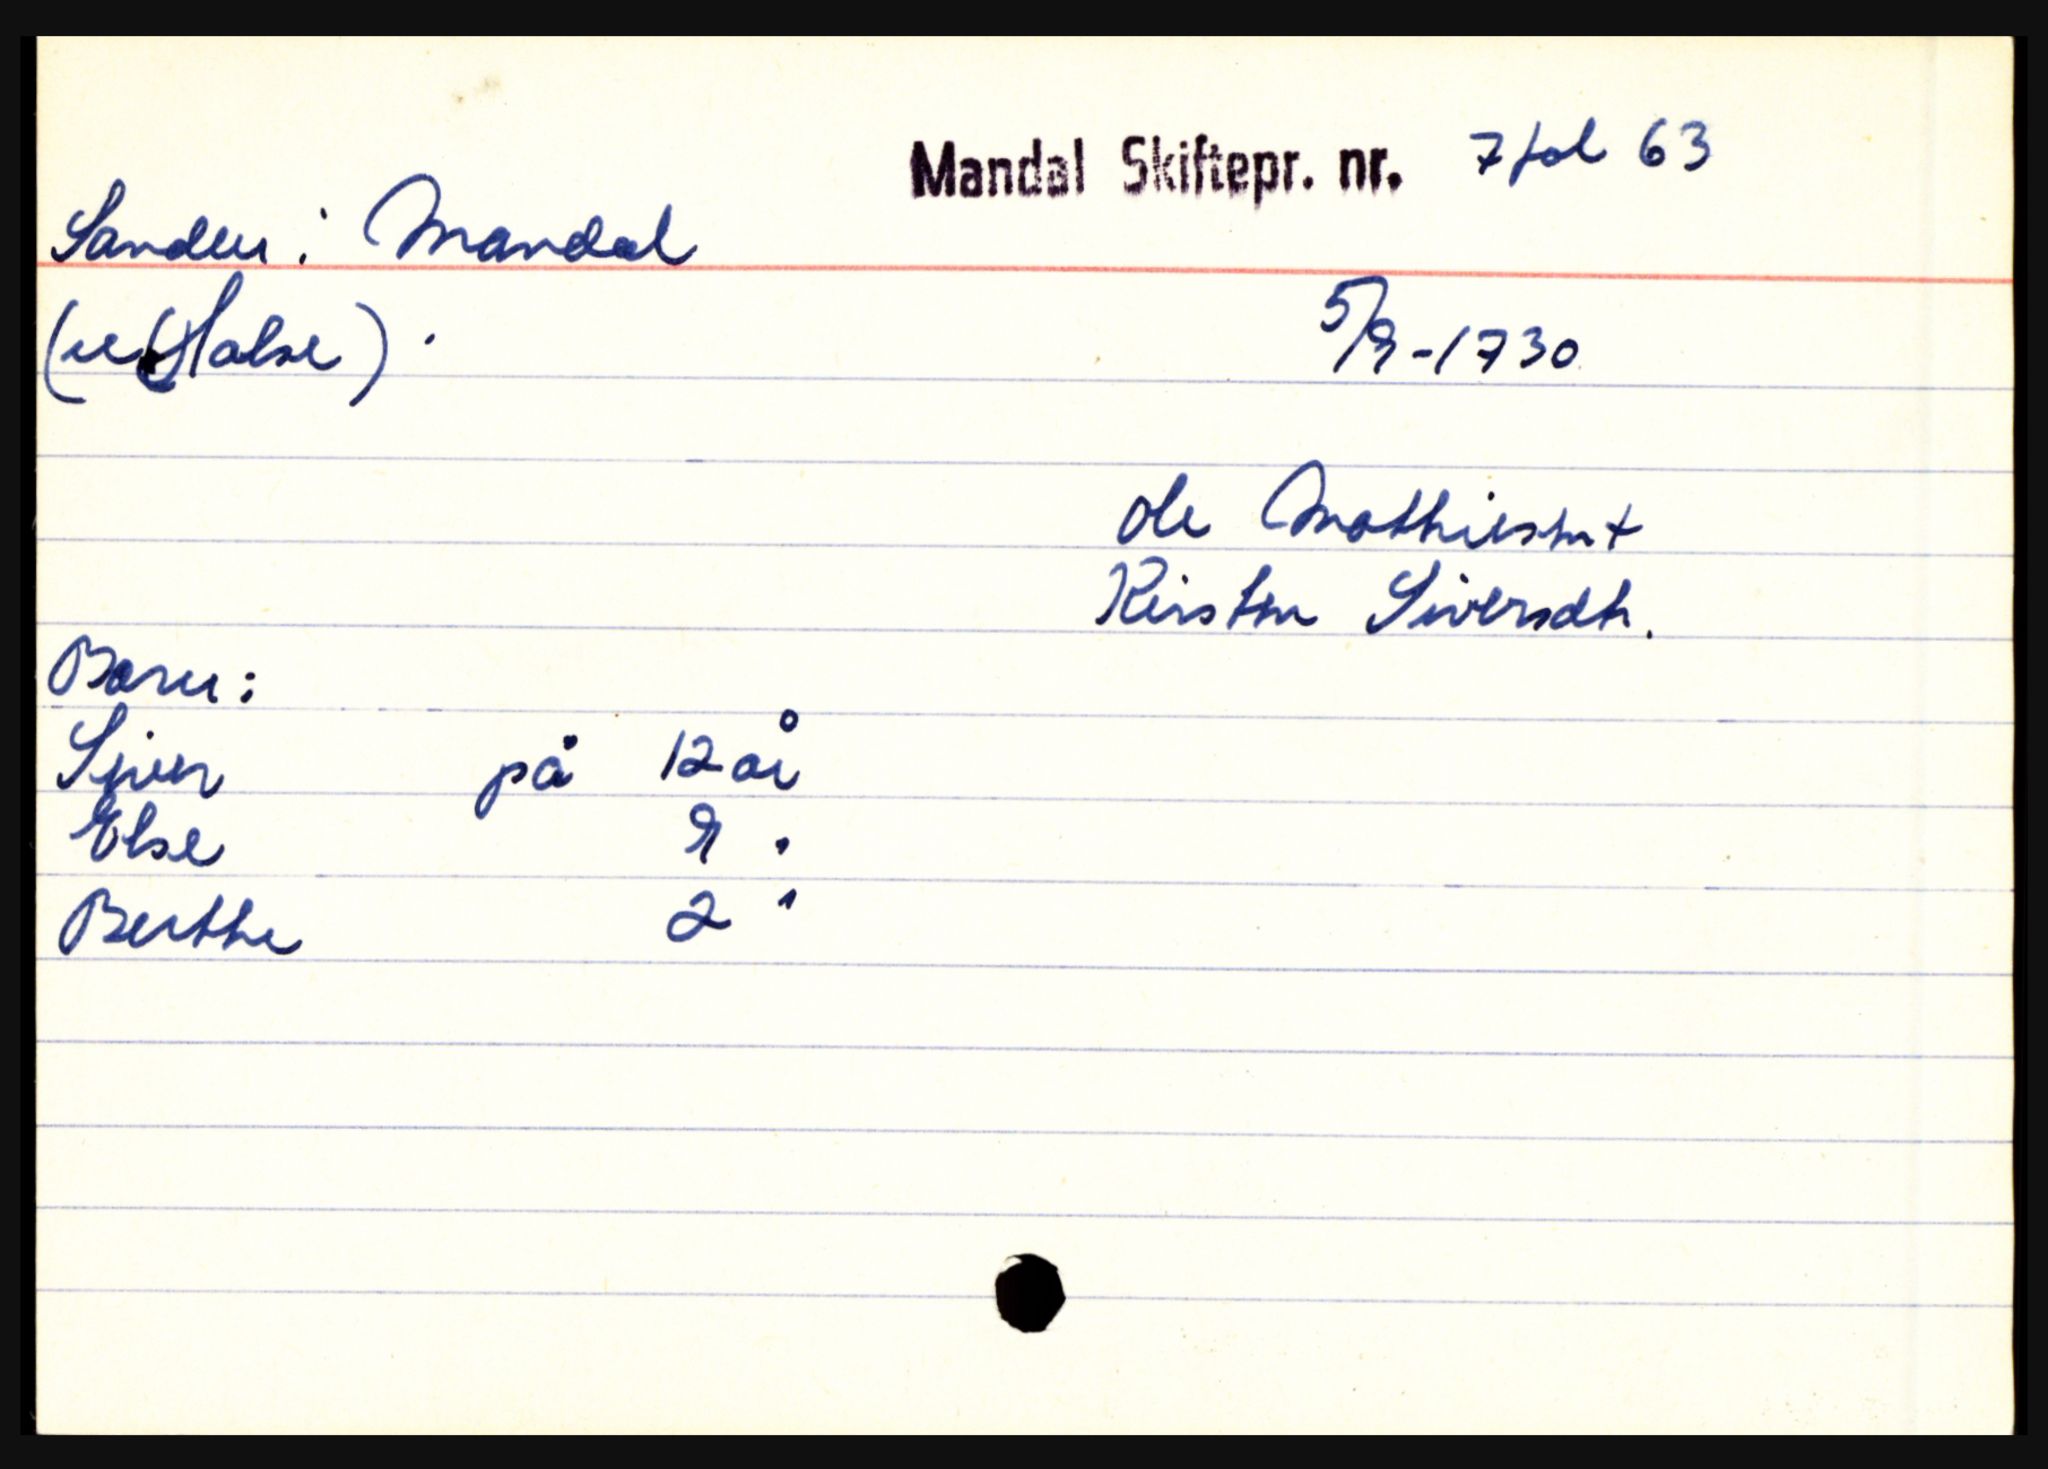 Mandal Skiftepr. nr. 7 fol 63
Sanden i Mandal
(ve Halse).
5/9-1730
Ole Mathiesen +
Kirsten Siversdtr.
Barn:
Siver på 12 år
Else 9 "
Berthe 2 "